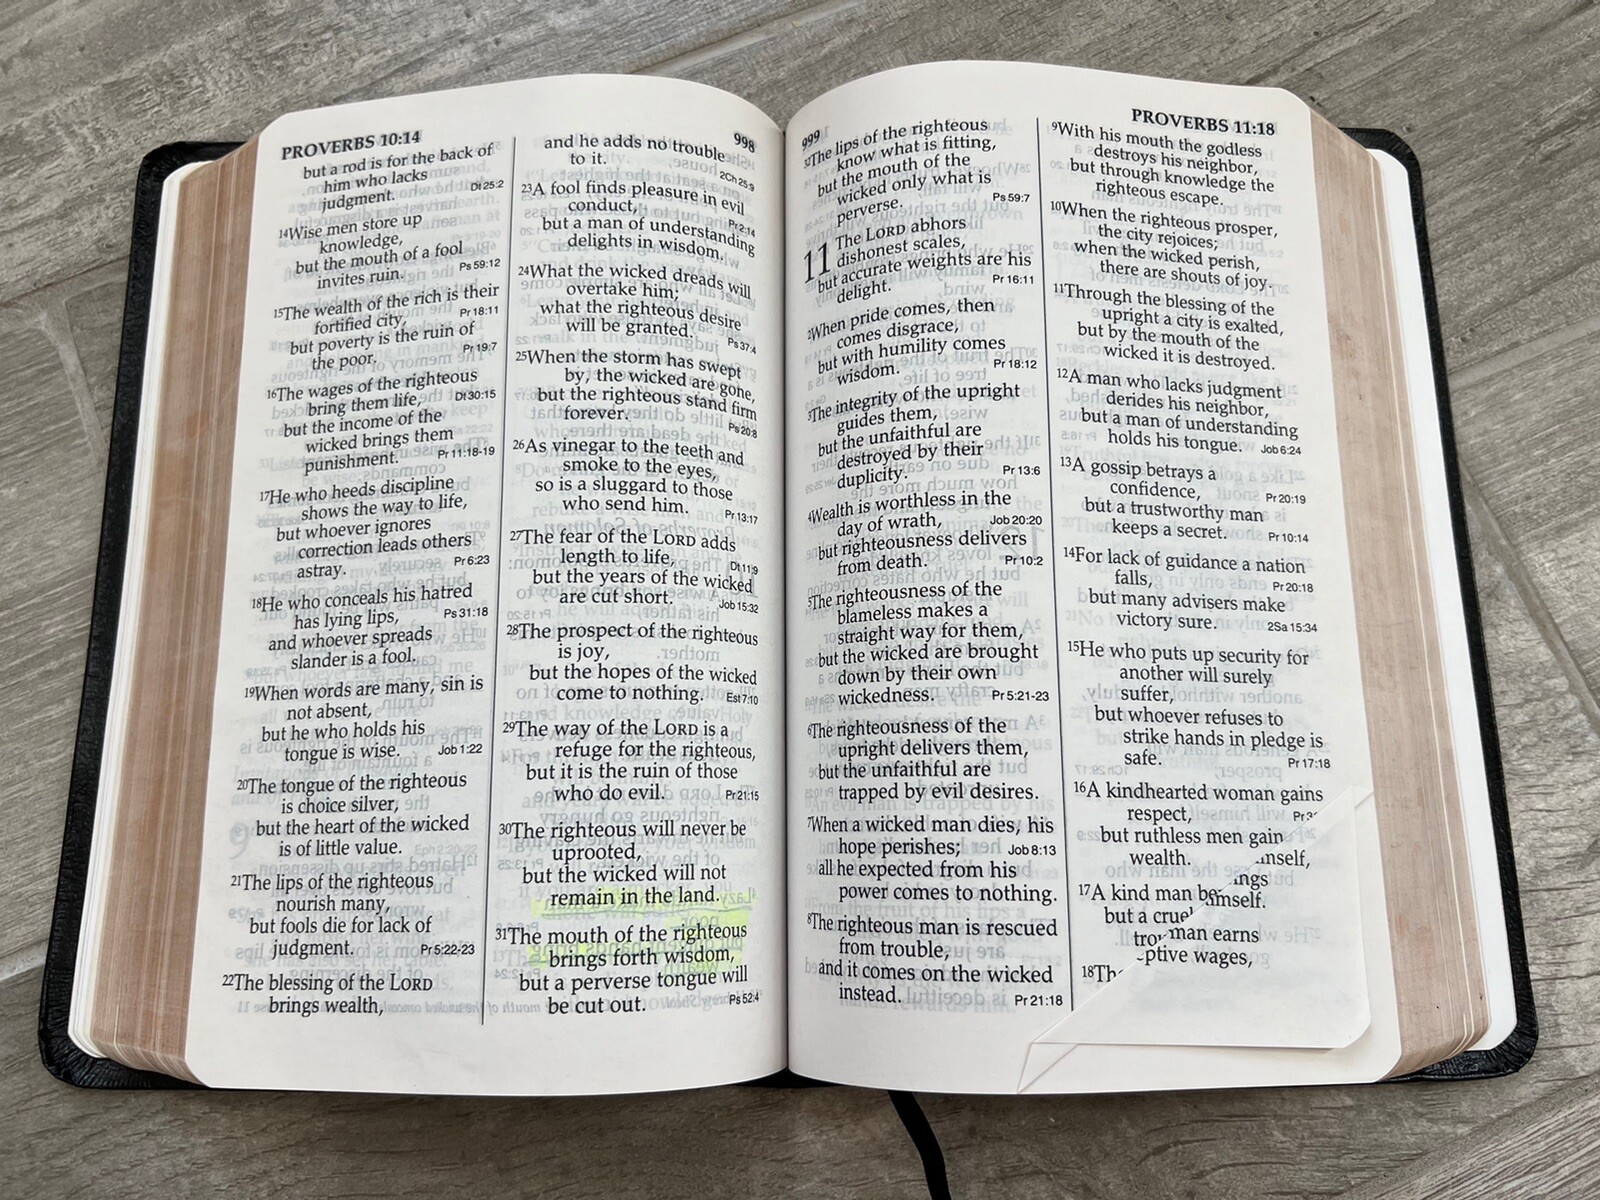 PROVERBS 10:14
998
but a rod is for the back of
him who lacks
judgment. Dt 25:2
14Wise men store up
knowledge,
but the mouth of a fool
invites ruin. Ps 59:12
15The wealth of the rich is their
fortified city, Pr 18:11
but poverty is the ruin of
the poor. Pr 19:7
16The wages of the righteous
bring them life, Dt 30:15
but the income of the
wicked brings them
punishment. Pr 11:18-19
17He who heeds discipline
shows the way to life,
but whoever ignores
correction leads others
astray. Pr 6:23
18He who conceals his hatred
has lying lips, Ps 31:18
and whoever spreads
slander is a fool.
19When words are many, sin is
not absent,
but he who holds his
tongue is wise. Job 1:22
20The tongue of the righteous
is choice silver,
but the heart of the wicked
is of little value.
21The lips of the righteous
nourish many,
but fools die for lack of
judgment. Pr 5:22-23
22The blessing of the LORD
brings wealth,
and he adds no trouble
to it. 2Ch 25:9
23A fool finds pleasure in evil
conduct, Pr 2:14
but a man of understanding
delights in wisdom.
24What the wicked dreads will
overtake him;
what the righteous desire
will be granted. Ps 37:4
25When the storm has swept
by, the wicked are gone,
but the righteous stand firm
forever. Ps 20:8
26As vinegar to the teeth and
smoke to the eyes,
so is a sluggard to those
who send him. Pr 13:17
27The fear of the LORD adds
length to life, Dt 11:9
but the years of the wicked
are cut short. Job 15:32
28The prospect of the righteous
is joy,
but the hopes of the wicked
come to nothing. Est 7:10
29The way of the LORD is a
refuge for the righteous,
but it is the ruin of those
who do evil. Pr 21:15
30The righteous will never be
uprooted,
but the wicked will not
remain in the land.
31The mouth of the righteous
brings forth wisdom,
but a perverse tongue will
be cut out. Ps 52:4
999
PROVERBS 11:18
32The lips of the righteous
know what is fitting,
but the mouth of the
wicked only what is
perverse. Ps 59:7
11 The LORD abhors
dishonest scales,
but accurate weights are his
delight. Pr 16:11
2When pride comes, then
comes disgrace,
but with humility comes
wisdom. Pr 18:12
3The integrity of the upright
guides them,
but the unfaithful are
destroyed by their
duplicity. Pr 13:6
4Wealth is worthless in the
day of wrath, Job 20:20
but righteousness delivers
from death. Pr 10:2
5The righteousness of the
blameless makes a
straight way for them,
but the wicked are brought
down by their own
wickedness. Pr 5:21-23
6The righteousness of the
upright delivers them,
but the unfaithful are
trapped by evil desires.
7When a wicked man dies, his
hope perishes; Job 8:13
all he expected from his
power comes to nothing.
8The righteous man is rescued
from trouble,
and it comes on the wicked
instead. Pr 21:18
9With his mouth the godless
destroys his neighbor,
but through knowledge the
righteous escape.
10When the righteous prosper,
the city rejoices;
when the wicked perish,
there are shouts of joy.
11Through the blessing of the
upright a city is exalted,
but by the mouth of the
wicked it is destroyed.
12A man who lacks judgment
derides his neighbor,
but a man of understanding
holds his tongue. Job 6:24
13A gossip betrays a
confidence, Pr 20:19
but a trustworthy man
keeps a secret. Pr 10:14
14For lack of guidance a nation
falls, Pr 20:18
but many advisers make
victory sure. 2Sa 15:34
15He who puts up security for
another will surely
suffer,
but whoever refuses to
strike hands in pledge is
safe. Pr 17:18
16A kindhearted woman gains
respect,
but ruthless men gain
wealth.
17A kind man
but a cruel
man earns
wages,